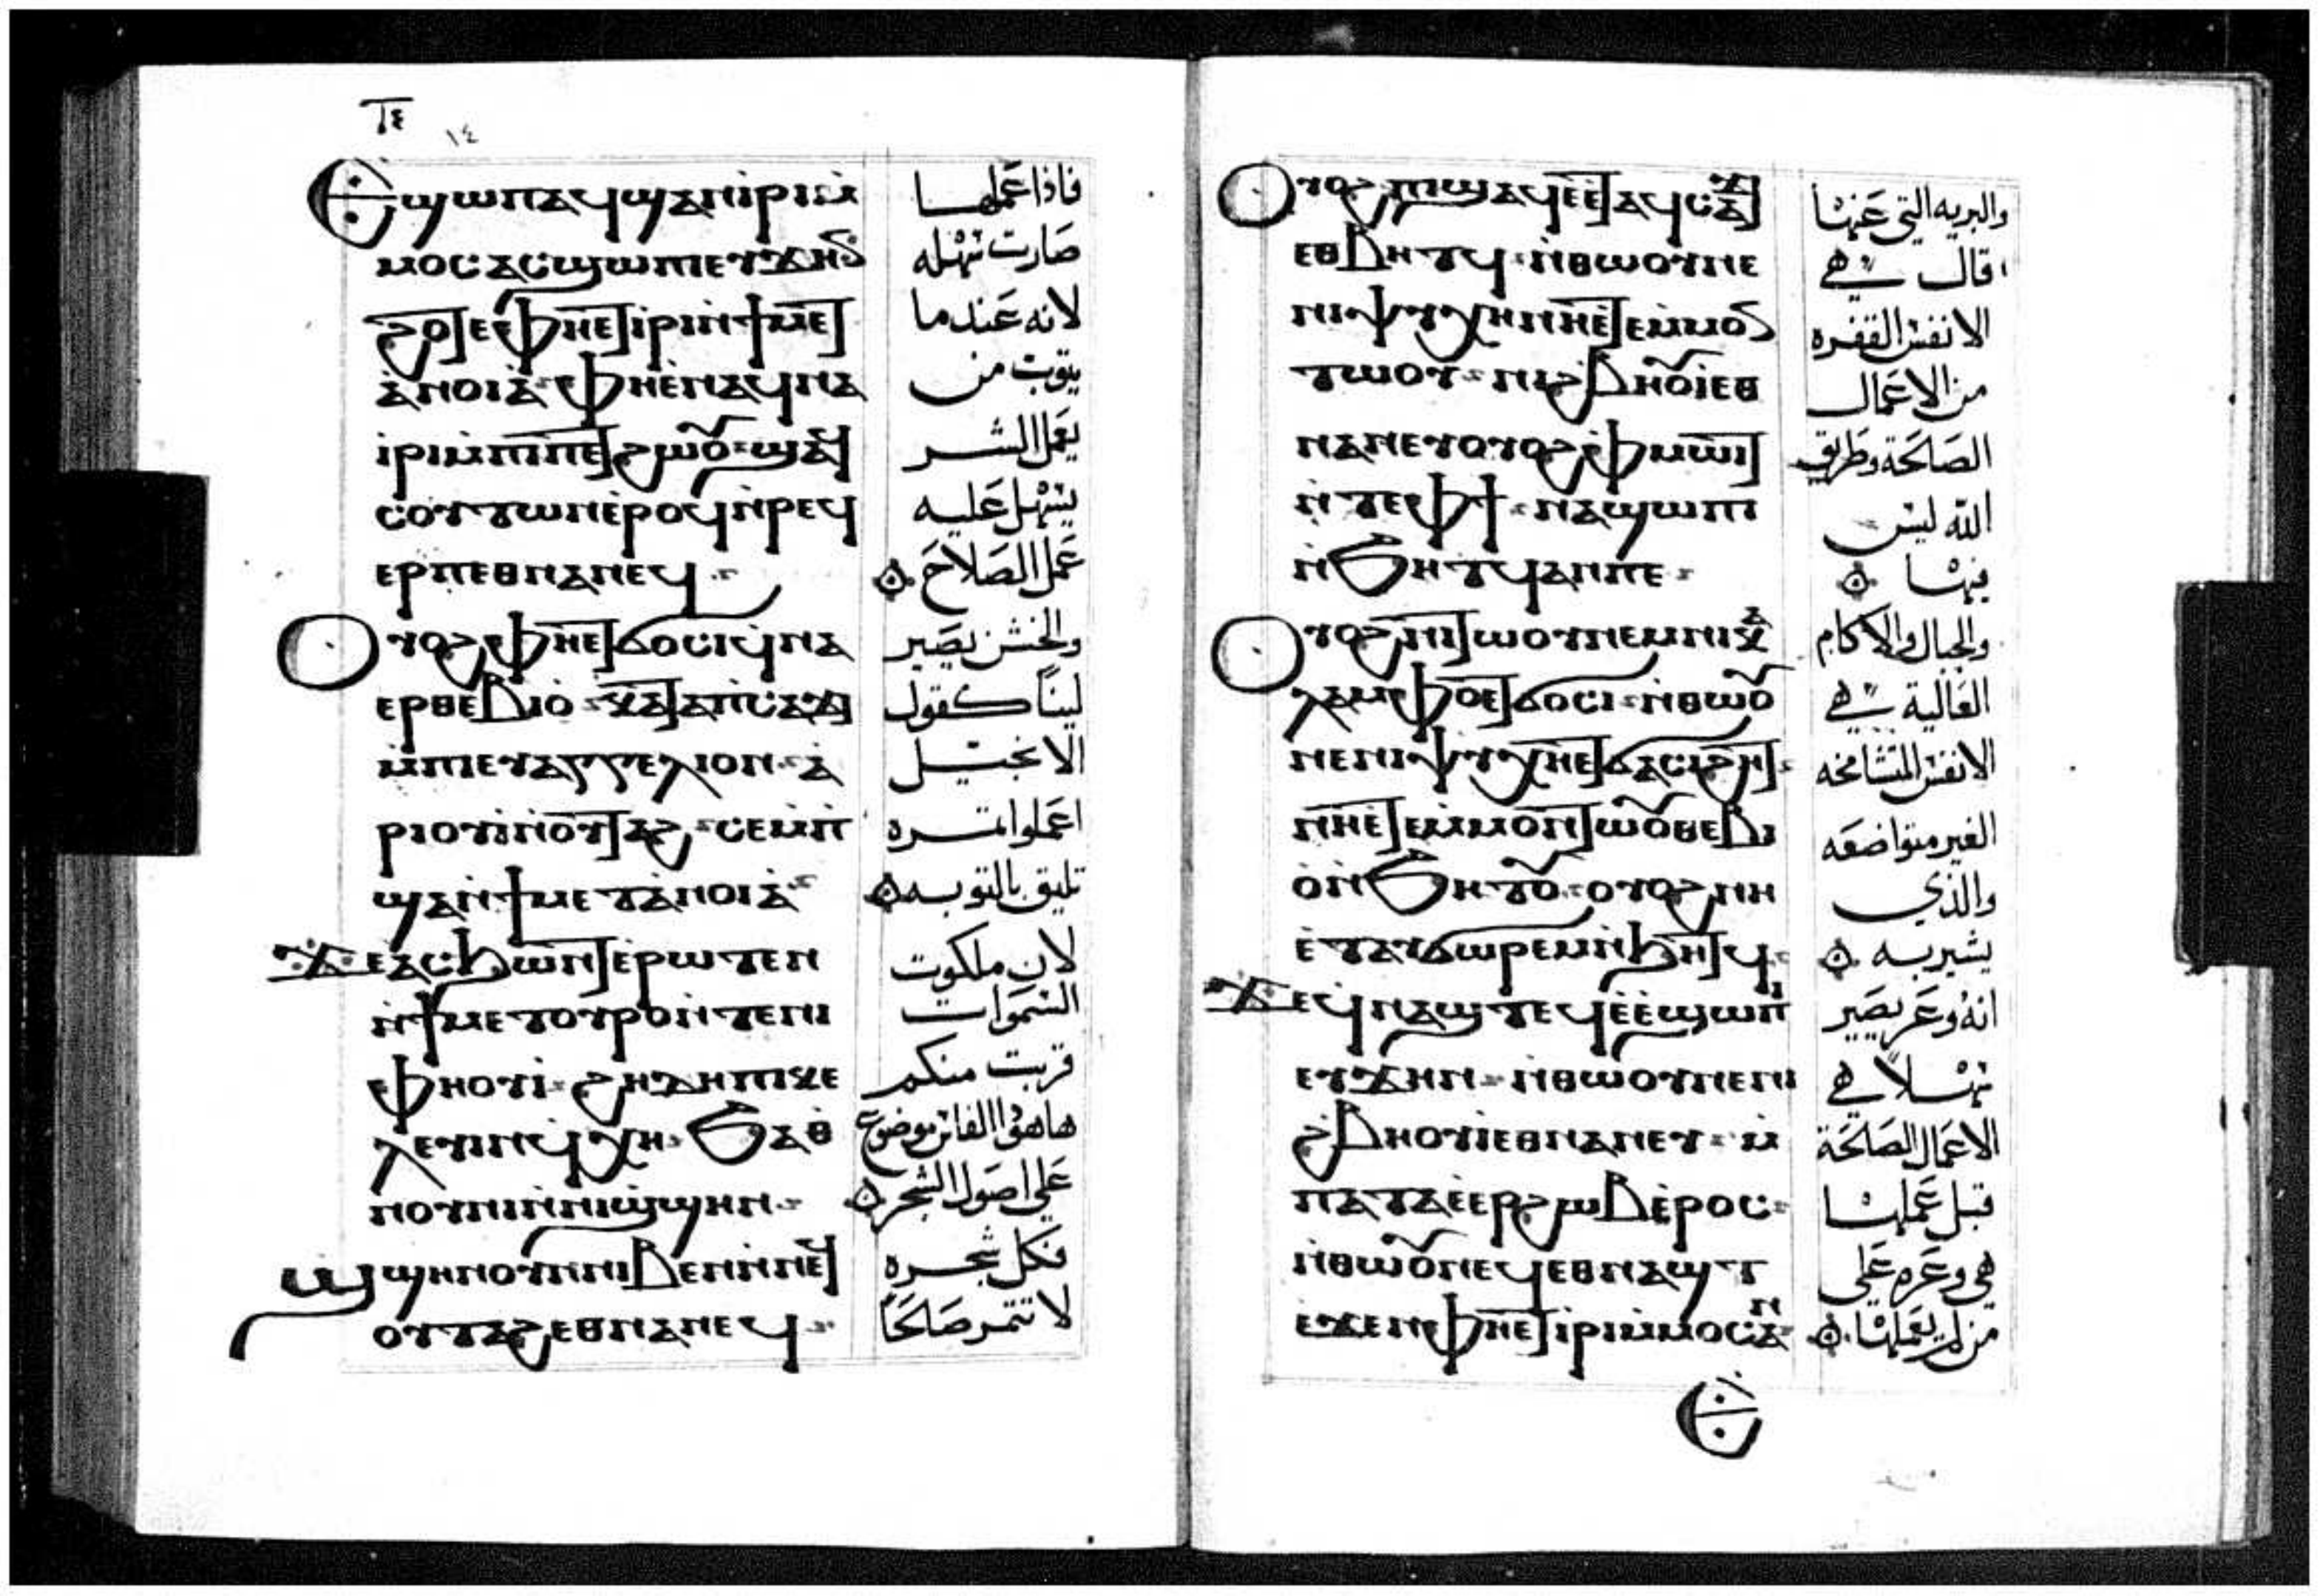 ⲓⲇ
١٤
Ⲉϣⲱⲡ ⲁϥϣⲁⲛⲓⲣⲓ ⲙ̀
ⲙⲟⲥ ⲁⲥϣⲱⲡⲓ ⲉⲩϫⲏⲟⲩ
ϩⲟⲧⲉ ⲫⲏⲉⲧⲓⲣⲓ ⲛ̀ϯⲙⲉⲧ
ⲁ̀ⲛⲟⲓⲁ̀ ⲫⲏⲉ̀ⲛⲁϥⲛⲁ
ⲓⲣⲓ ⲙ̀ⲡⲓⲡⲉⲧϩⲱⲟⲩ ϣⲁϥ
ⲥⲟⲩⲧⲱⲛ ⲉ̀ⲣⲟϥ ⲛ̀ⲣⲉϥ
ⲉⲣⲡⲉⲑⲛⲁⲛⲉϥ
Ⲟⲩⲟϩ ⲫⲏⲉⲧϭⲟⲥⲓ ϥ̀ⲛⲁ
ⲉⲣⲑⲉⲃⲓⲟ̀ ⲕⲁⲧⲁ ⲡⲥⲁϫⲓ
ⲙ̀ⲡⲓⲉⲩⲁⲅⲅⲉⲗⲓⲟⲛ ⲁ̀
ⲣⲓⲟⲩⲓ̀ ⲛ̀ⲟⲩⲧⲁϩ ⲥⲉⲙ̀ⲡ
ϣⲁ ⲛ̀ϯⲙⲉⲧⲁ̀ⲛⲟⲓⲁ̀
ϫⲉ ⲁⲥϧⲱⲛⲧ ⲉ̀ⲣⲱⲧⲉⲛ
ⲛ̀ϯⲙⲉⲧⲟⲩⲣⲟ ⲛ̀ⲧⲉⲛⲓ
ⲫⲏⲟⲩⲓ̀ ϩⲏⲇⲏ ⲡⲓⲕⲉ
ⲗⲉⲩⲓⲛ ϥ̀ⲭⲏ ϧⲁⲑ̀
ⲛⲟⲩⲛⲓ ⲛ̀ⲛⲓϣ̀ϣⲏⲛ
Ϣϣⲏⲛ ⲟⲩⲛ ⲛⲓⲃⲉⲛ
ⲟⲩⲧⲁϩ ⲉⲑⲛⲁⲛⲉϥ
فاذا عملها
صارت سهله
لانه عندما
يتوب من
يعمل الشر
يسهل عليه
عمل الصلاح
والخشن يصير
لينا كقول
الانجيل
اعملوا ثمره
تليق بالتوبه
لان ملكوت
السموات
قربت منكم
هاهوا الفاس موضوع
على اصول الشجر
فكل شجره
لا تثمر صالحا
Ⲟⲩⲟϩ ⲡⲓϣⲁϥⲉ̀ ⲉⲧⲁϥⲥⲁϫⲓ
ⲉⲑⲃⲏⲧϥ ⲛ̀ⲑⲱⲟⲩ ⲡⲉ
ⲛⲓⲯⲩⲭⲏ ⲛⲏⲉ̀ⲧⲉ ⲙ̀ⲙⲟⲛ
ⲧⲱⲟⲩ ⲛⲓϩⲃⲏⲟⲩⲓ ⲉⲑ
ⲛⲁⲛⲉⲩ ⲟⲩⲟϩ ⲫⲙⲱⲓⲧ
ⲛ̀ⲧⲉ ⲫϯ ⲛⲁϣⲱⲡⲓ
ⲛ̀ϧⲏⲧϥ ⲁⲛ ⲡⲉ
Ⲟⲩⲟϩ ⲛⲓⲧⲱⲟⲩ ⲛⲉⲙ ⲛⲓⲕⲁ
ⲗⲁⲙⲫⲟ ⲉⲧϭⲟⲥⲓ ⲛ̀ⲑⲱⲟⲩ
ⲛⲉ ⲛⲓⲯⲩⲭⲏ ⲉⲧϭⲁⲥⲓϩⲏⲧ
ⲛⲏⲉ̀ⲧⲉ ⲙ̀ⲙⲟⲛⲧⲱⲟⲩ ⲑⲉⲃⲓ
ⲟ̀ ⲛ̀ϧⲏⲧⲟⲩ ⲟⲩⲟϩ ⲛⲏ
ⲉ̀ⲧⲁⲩϭⲱⲣⲉⲙ ⲛ̀ϧⲏⲧϥ
ϫⲉ ϥ̀ⲛⲁϣⲧ ⲉϥⲉ̀ⲉ̀ϣⲱⲡⲓ
ⲉⲩϫⲏⲛ ⲛ̀ⲑⲱⲟⲩ ⲛⲉ ⲛⲓ
ϩⲃⲏⲟⲩⲓ̀ ⲉⲑⲛⲁⲛⲉⲩ ⲙ̀
ⲡⲁⲧⲁⲉ̀ⲉⲣϩⲱⲃ ⲉ̀ⲣⲟⲥ
ⲛ̀ⲑⲱⲟⲩ ⲛⲉ ϥⲉⲑⲛⲁϣⲧ
ⲉϫⲉⲛ ⲫⲏⲉⲧⲓⲣⲓ ⲙ̀ⲙⲟⲥ ⲁⲛ
والبريه التى عنها
قال هي
الانفس القفره
من الاعمال
الصالحة وطريق
الله ليس
فيها
والجبال والاكام
العالية هي
الانفس المتشامخه
الغير متواضعه
والذي
يشير به
انه وعر يصير
سهلا هي
الاعمال الصالحة
قبل عملها
هي وعره على
من لم يعملها
Ⲉ